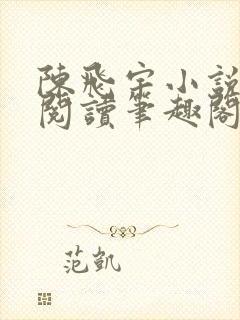 陳飛宇小說
閱讀筆趣閣
范凱